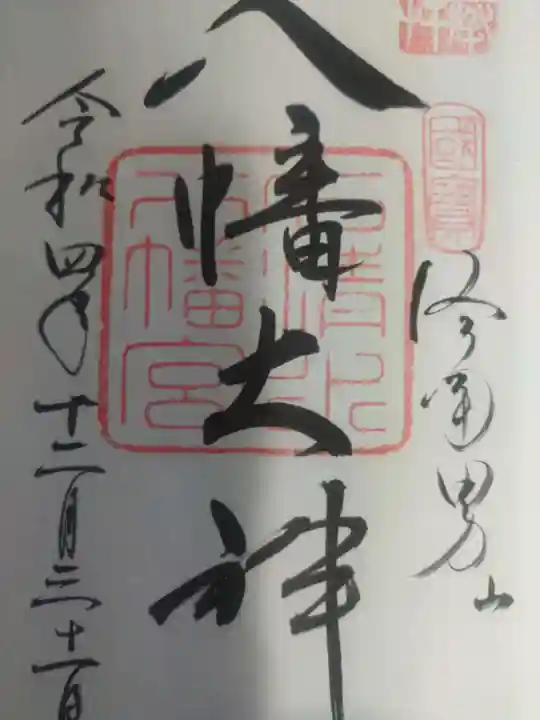 國寶
洛南男山
八幡大神
石清水
八幡宮
令和四年十二月三十一日